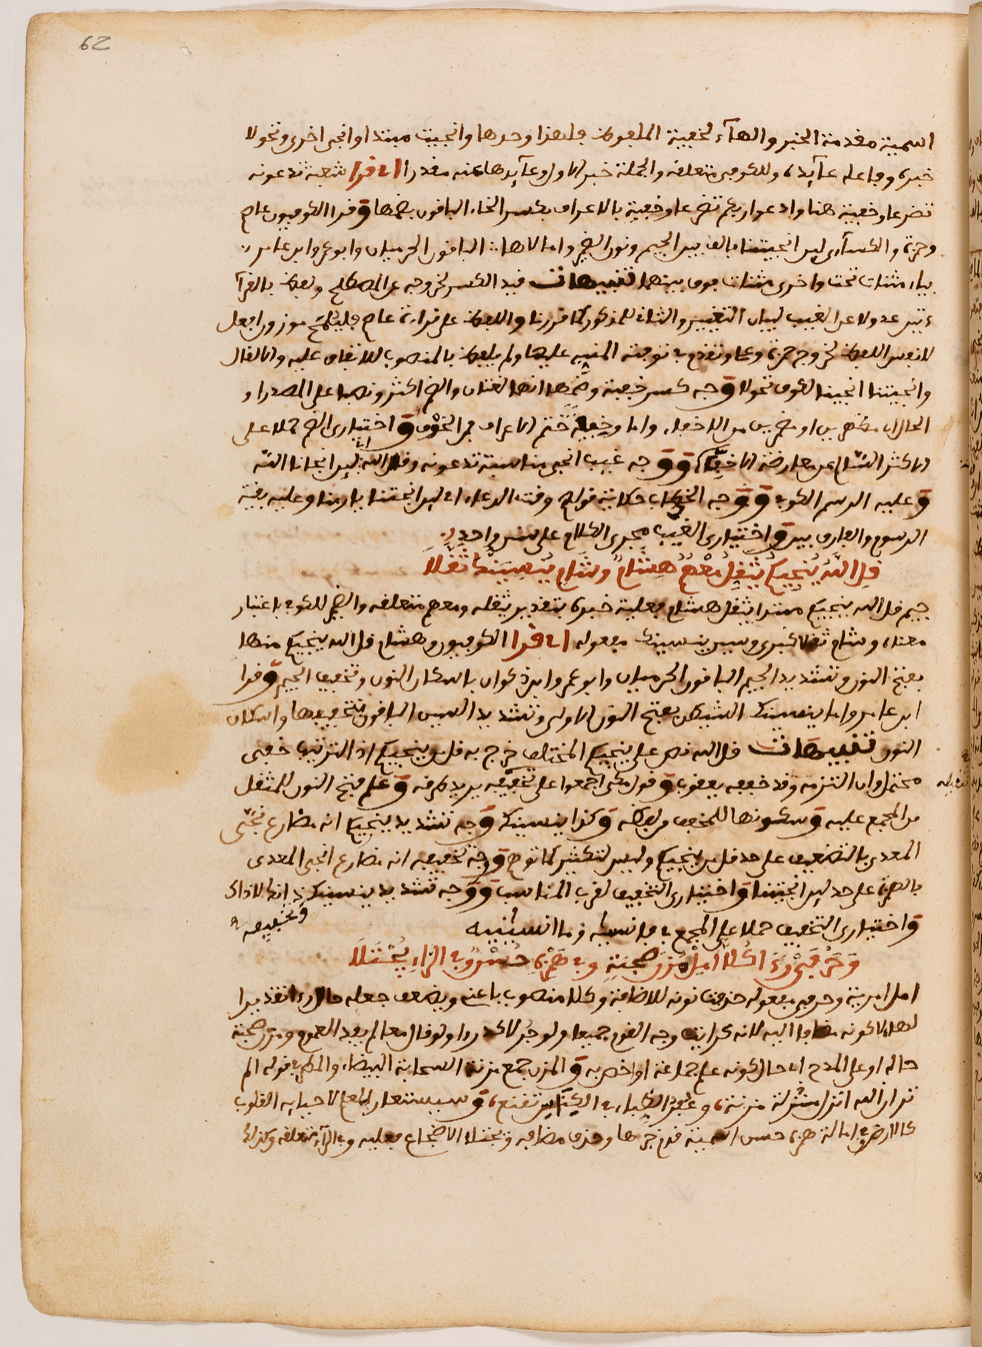 62
اسمية مقدمة الخبر والهاء لخفية الملفوظ فلهذا وحدها وانجيت مبتدا وانجى اخرى وتحولا
خبره وفاعله عائده وللكوفى متعلقه والجملة خبر الاول وعايدها منه مقدر اى قرا شعبة تدعونه
تضرعا وخفية هنا وادعوا ربكم تضرعا وخفية بالاعراف بكسر الخاء الباقون بضمها وقرا الكوفيون عاصم
وحمزة والكسآءى لين انجيتنا بالف بين الجيم ونون الضمير وامالاها الباقون الحرميان وابو عمرو وابن عامر
بياء مثناة تحت واخرى مثناة فوق بينهما تنبيهات قيد الكسر لخروجه عن المصطلح ولفظ بالقرآ
ءتين عدولا عن الغيب لبيان التغيير والثانى للمذكور كما قررنا واللفظ على قراءة عاصم
لا نفس اللفظ لخروج حمزة وعلى وتقدم توجيه المنبه عليها ولم يلفظ بالمنصوب للاتفاق عليه ولا قال
وانجيتنا انجينا للكوف تحولا وجه كسر خفية وضمها انهما لغتان والضم اكثر ونصبا على المصدر او
الحال اى مظهرين او مضمرين من الاخفاء واما وخيفة ختم الاعراف من الخوف واختيارى الضم حملا على
الاكثر السالم عن معارضة الاخفاء ووجه غيب انجى مناسبة تدعونه وقل الله اى لين انجانا الله
وعليه الرسم الكوفى ووجه الخطاب حكاية قولهم وقت الدعاء اى لين انجيتنا يا ربنا وعليه بقية
الرسوم والفارق بين واختيارى الغيب مجرى الكلام على سنن واحد
قل الله ينجيكم يثقل معهم هشام وشام ينسينك ثقلا
جيم قل الله ينجيكم مبتدا يثقل هشام فعلية خبره بتقدير يثقله ومعهم متعلقه والضمير للكوف باعتبار
معناه وشام ثقلا كبرى وسين ينسينك مفعوله اى قرا الكوفيون وهشام قل الله ينجيكم منها
بفتح النون وتشديد الجيم الباقون الحرميان وابو عمرو وابن ذكوان باسكان النون وتخفيف الجيم وقرا
ابن عامر واما ينسينك الشيطن بفتح النون الاولى وتشديد السين الباقون بتخفيفها واسكان
النون تنبيهات قل الله نص على ينجيكم المختلف خرج به قل من ينجيكم اذ الترتيب خفى
محتمل وان التزمه وقد خففه يعقوب وقول مكى اجمعوا على تخفيفه يريد طرقه وعلم فتح النون للمثقل
من المجمع عليه وسكونها للمخفف من لفظه وكذا ينسينك وجه تشديد ينجيكم انه مضارع نجى
المعدى بالتضعيف على حد قل من ينجيكم وليس لتكثير كما توهم وجه تخفيفه انه مضارع انجى المعدى
بالهمزة على حد لين انجيتنا واختيارى التخفيف لقرب المناسب ووجه تشديد ينسينك وتخفيفه انهما كذاك
واختيارى التخفيف حملا على المجمع فانساه وما انسانيه
وحرفى رءا كلا امل مزن صحبة وفى همزه حسن وفى الراء يجتلا
امل امرية وحرفى مفعوله حذفت نونه للاضافة وكلا منصوب باعنى ويضعف جعله حال رءا تقديرا
لفظا لكونه مضافا اليه لانه كرايت وجه القوم جميعا ولو جر لاكد رءا ولو قال معا لم يفد العموم ومزن صحبة
حاله او على المدح اى حال كونه علم جماعة او اخص به والمزن جمع مزنة السحابة البيضاء والمطر فى قوله الم
تر ان الله انزل مزنة وعفر الظباء فى الكناس تقمع وسيستعار للعلم لاحيائه القلوب
كالارض وفى امالة همزه حسن اسمية قدم خبرها وحذف مضافه ويجتلا الاضجاع فعلية وفى الراء متعلقه وكذا